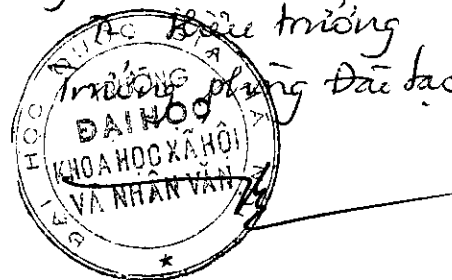 Hiệu trưởng
Trưởng phòng Đào tạo
ĐẠI HỌC QUỐC GIA HÀ NỘI
TRƯỜNG
ĐẠI HỌC
KHOA HỌC XÃ HỘI
VÀ NHÂN VĂN
★